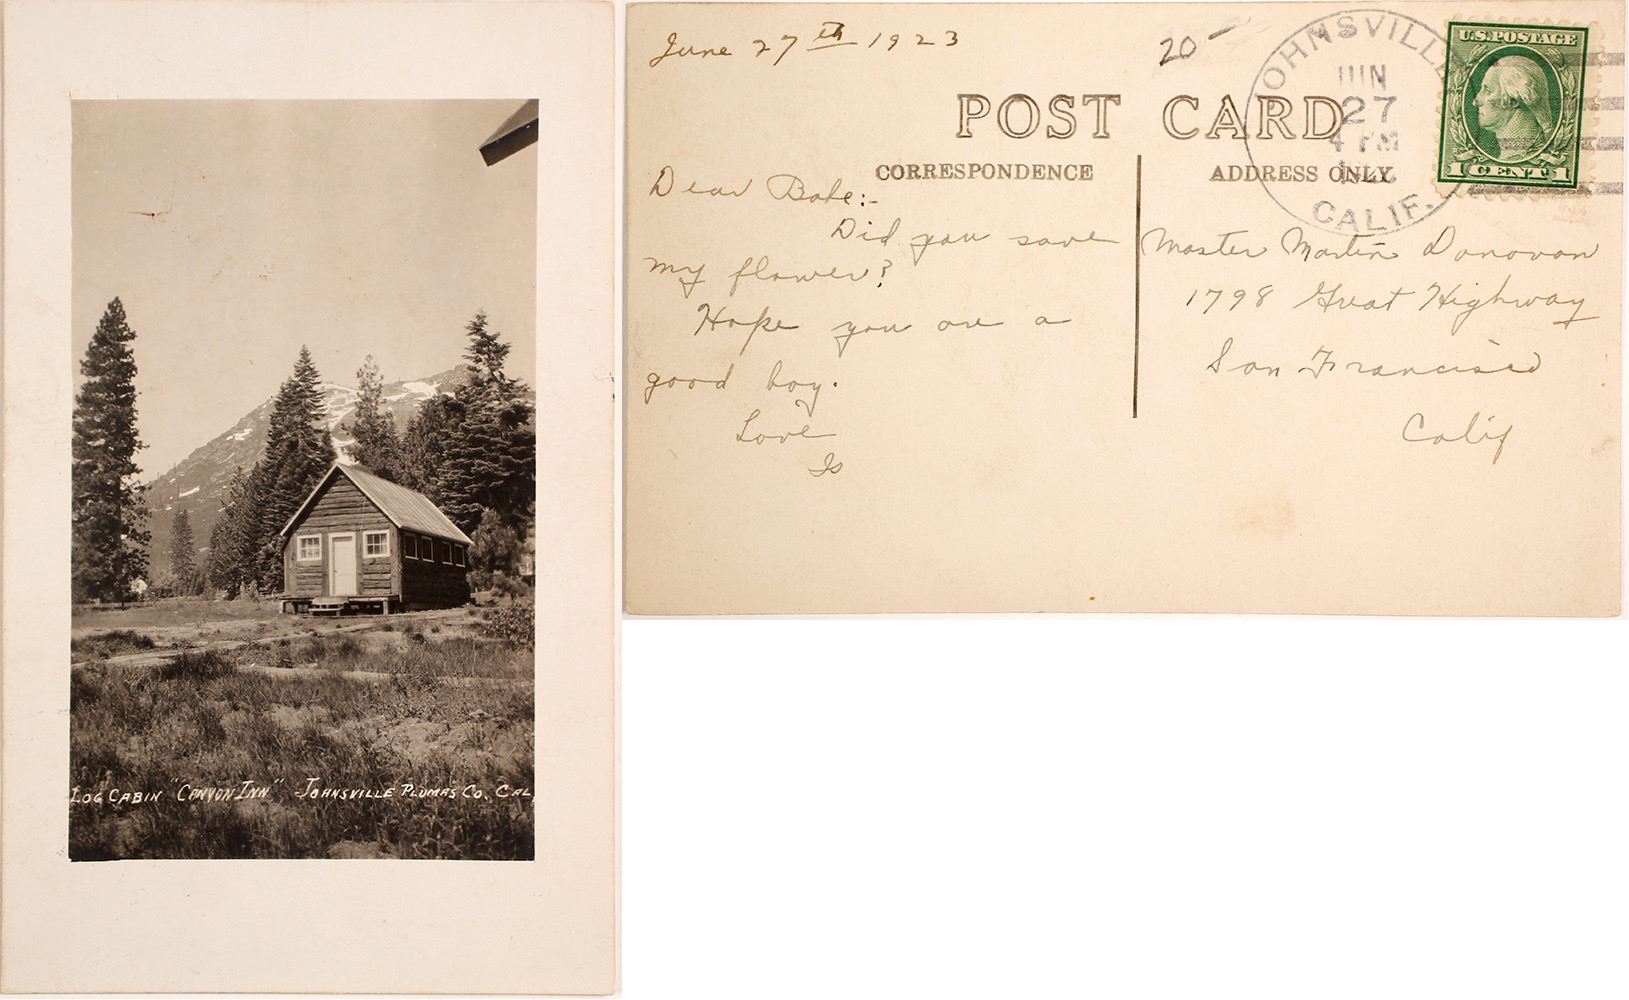 LOG CABIN "CANYON INN" JOHNSVILLE PLUMAS CO. CAL.
June 27th 1923
20-
POST CARD
CORRESPONDENCE
ADDRESS ONLY
JOHNSVILLE
JUN
27
4 PM
CALIF.
U.S. POSTAGE
1 CENT 1
Dear Babe:-
Did you save
my flower?
Hope you are a
good boy.
Love
Is
Master Martin Donovan
1798 Great Highway
San Francisco
Calif